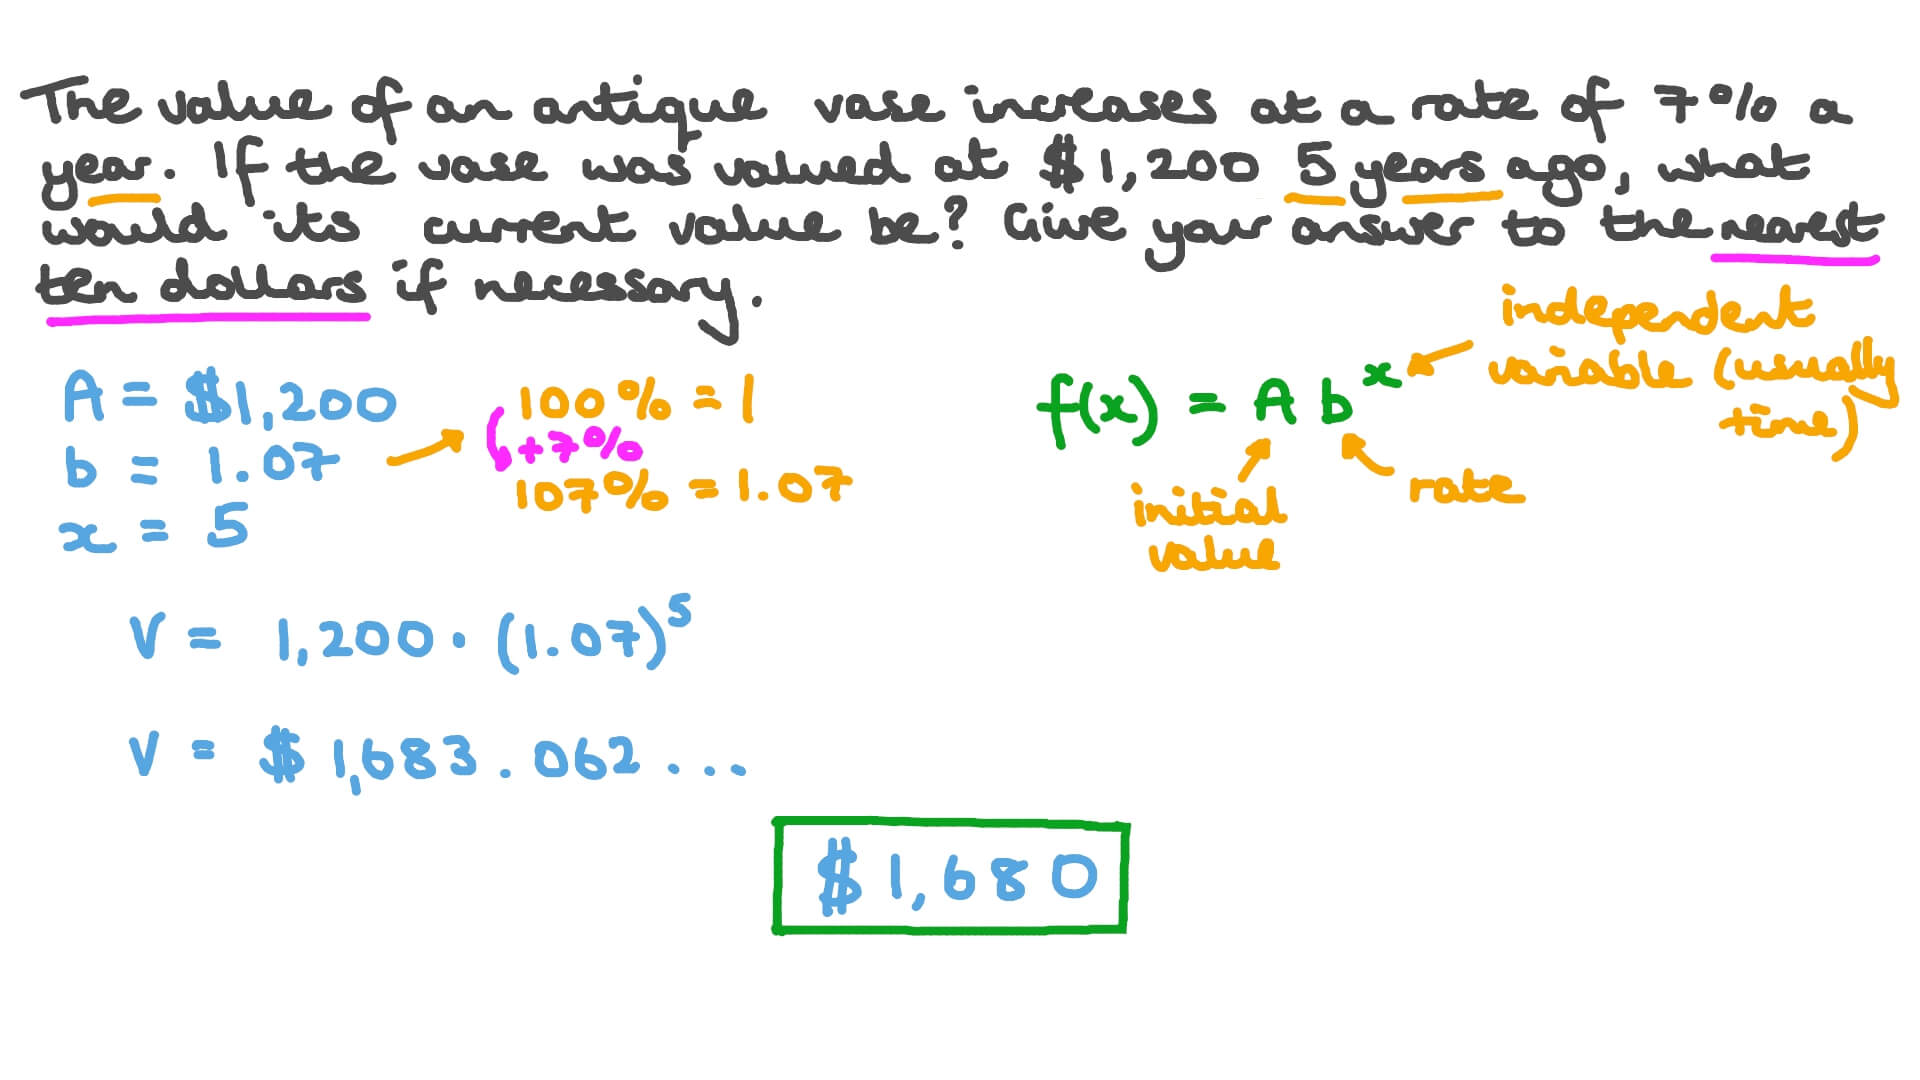 The value of an antique vase increases at a rate of 7% a
year. If the vase was valued at $1,200 5 years ago, what
would its current value be? Give your answer to the nearest
ten dollars if necessary.
A = $1,200
b = 1.07
x = 5
100% = 1
+7%
107% = 1.07
f(x) = A b^x
independent
variable (usually
time)
initial
value
rate
V = 1,200 · (1.07)^5
V = $1,683.062...
$1,680